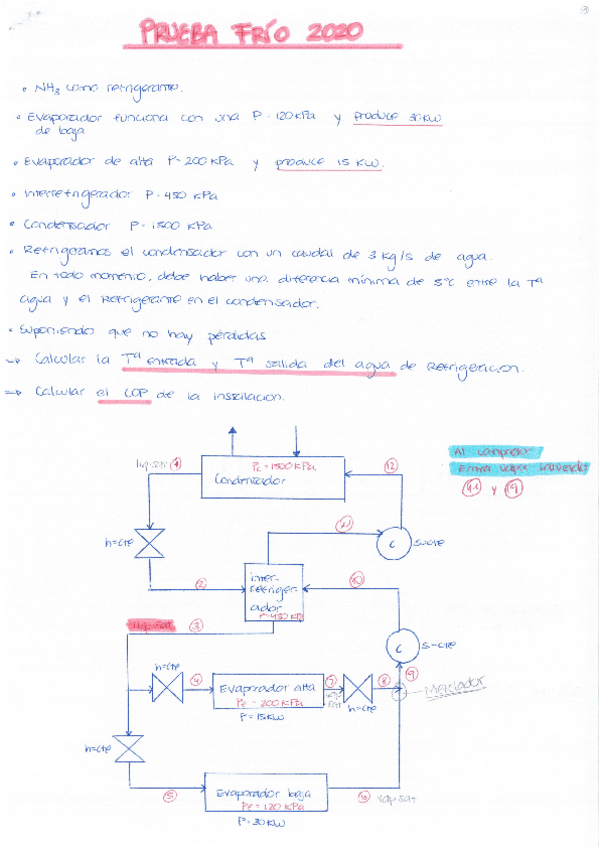 PRUEBA FRÍO 2020
• NH3 como refrigerante.
• Evaporador funciona con una P = 120 KPa y produce 30 KW
de baja
• Evaporador de alta P = 200 KPa y produce 15 KW.
• Interrefrigerador P = 450 KPa
• Condensador P = 1500 KPa
• Refrigeramos el condensador con un caudal de 3 Kg/s de agua.
En todo momento, debe haber una diferencia mínima de 5°C entre la Tª
agua y el Refrigerante en el condensador.
• Suponiendo que no hay pérdidas
→ Calcular la Tª entrada y Tª salida del agua de Refrigeración.
→ Calcular el COP de la instalación.
Al compresor
Entra vapor
y 9
liq-sat 1
Pc = 1500 KPa
Condensador
12
h=cte
C
S=cte
2
inter-
refriger-
ador
P=450 KPa
10
liq-sat 3
C
S-cte
9
h=cte
4
Evaporador alta
Pe = 200 KPa
P = 15 KW
7
h=cte
8
Mezclador
h=cte
5
Evaporador baja
Pe = 120 KPa
P = 30 KW
vap sat